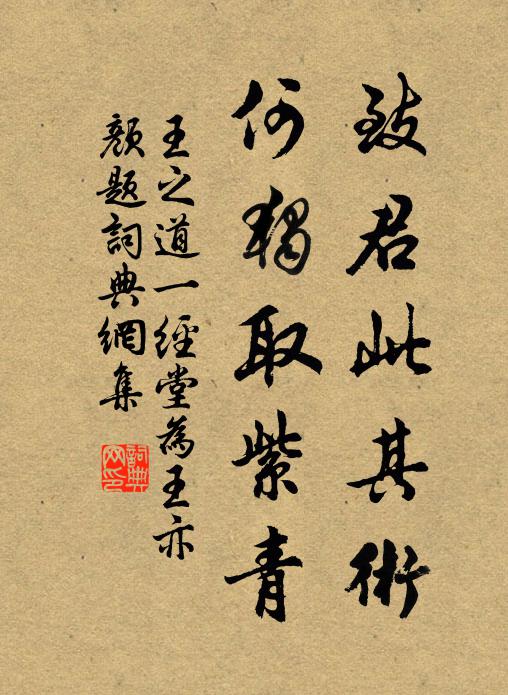 致君此其術
何獨取紫青
王之道一經堂為王亦
顏題詞典網集
詞典
网印